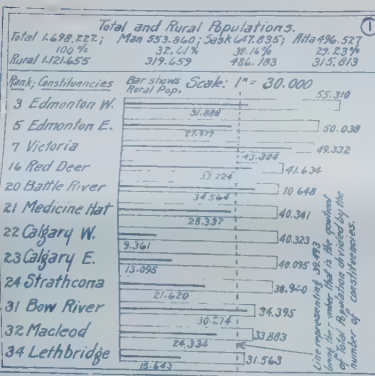 ①
Total and Rural Populations.
Total 1.698.222; Man 553.860; Sask 647.835; Alta 496.527
100% 32.61% 38.16% 29.23%
Rural 1.121.655 319.659 486.183 315.813
Rank; Constituencies Bar shows Rural Pop. Scale: 1" = 30.000
3 Edmonton W. 55.310
31.888
5 Edmonton E. 50.038
7 Victoria 49.332
43.304
16 Red Deer 41.634
33.224
20 Battle River 40.648
34.564
21 Medicine Hat 40.341
28.337
22 Calgary W. 40.323
9.361
23 Calgary E. 40.095
13.095
24 Strathcona 38.940
21.620
31 Bow River 34.395
30.214
32 Macleod 33.883
24.334
34 Lethbridge 31.563
Line representing 39.493
being the number that is the quotient
of total Population divided by the
number of constituencies.